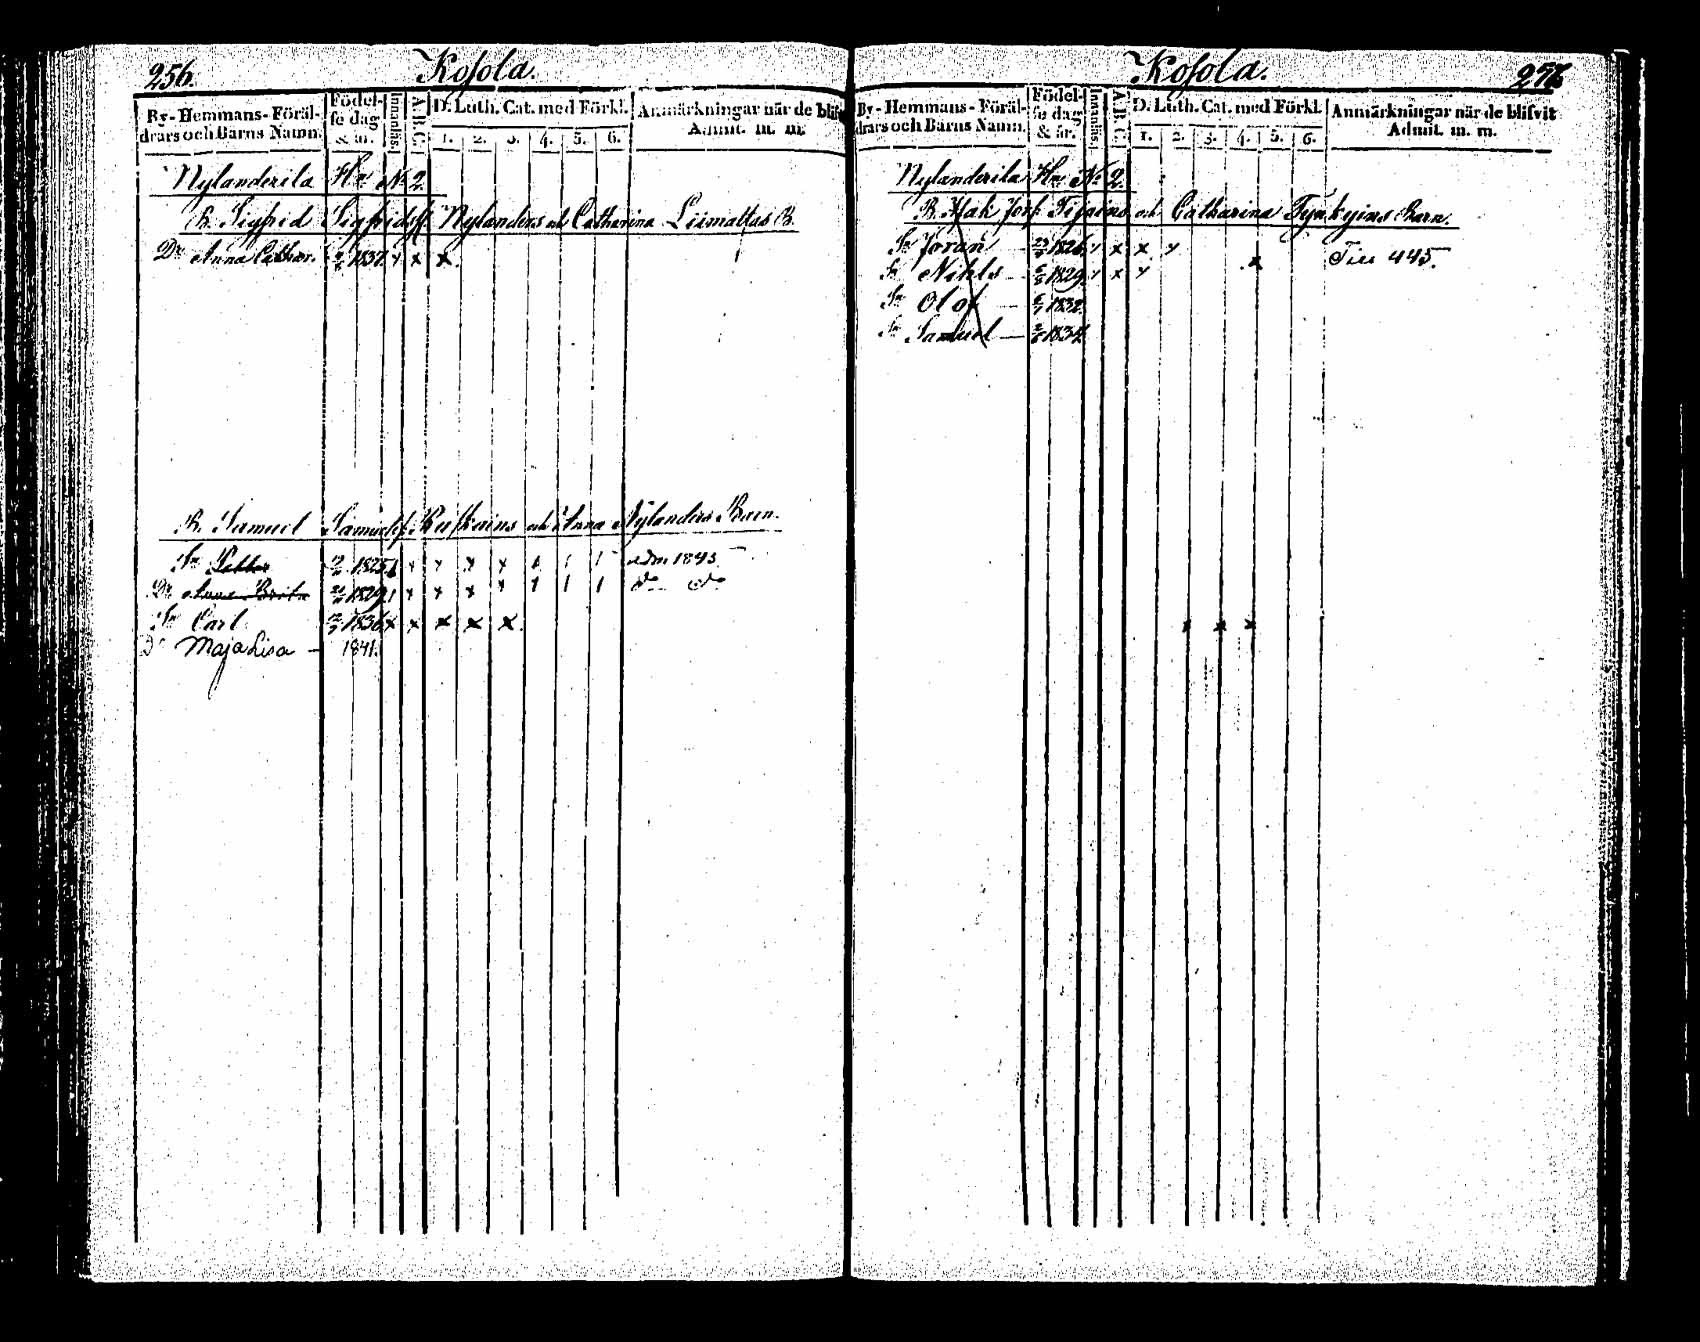 256. Kosola.
By-Hemmans-Föräl-drars och Barns Namn. Födel-se dag & år. Innanläs. A.B.C. D. Luth. Cat. med Förkl. 1. 2. 3. 4. 5. 6. Anmärkningar när de blifvit Admit. m. m.
Nylanderila Hn No 2.
B. Sigfrid Sigfridsf. Nylanders och Catharina Liimattas B.
Dr Anna Cathar. 1837 x x x
B. Samuel Samuelsf. Ruskains och Anna Nylanders Barn.
Sn 1825 x x x x 1 1 1 adm 1843
Dr Anna Brita 1829 x x x x 1 1 1 do do
Sn Carl 1836 x x x x x
Dr Maja Lisa – 1841.
Kosola. 257
By-Hemmans-Föräl-drars och Barns Namn. Födel-se dag & år. Innanläs. A.B.C. D. Luth. Cat. med Förkl. 1. 2. 3. 4. 5. 6. Anmärkningar när de blifvit Admit. m. m.
Nylanderila Hn No 2.
B. Isak Josf. och Catharina Tynkyins Barn.
Sn Jöran 1826 x x x x Till 445.
Sn Nihls 1829 x x x
Sn Olof – 1832
Sn Samuel – 1834